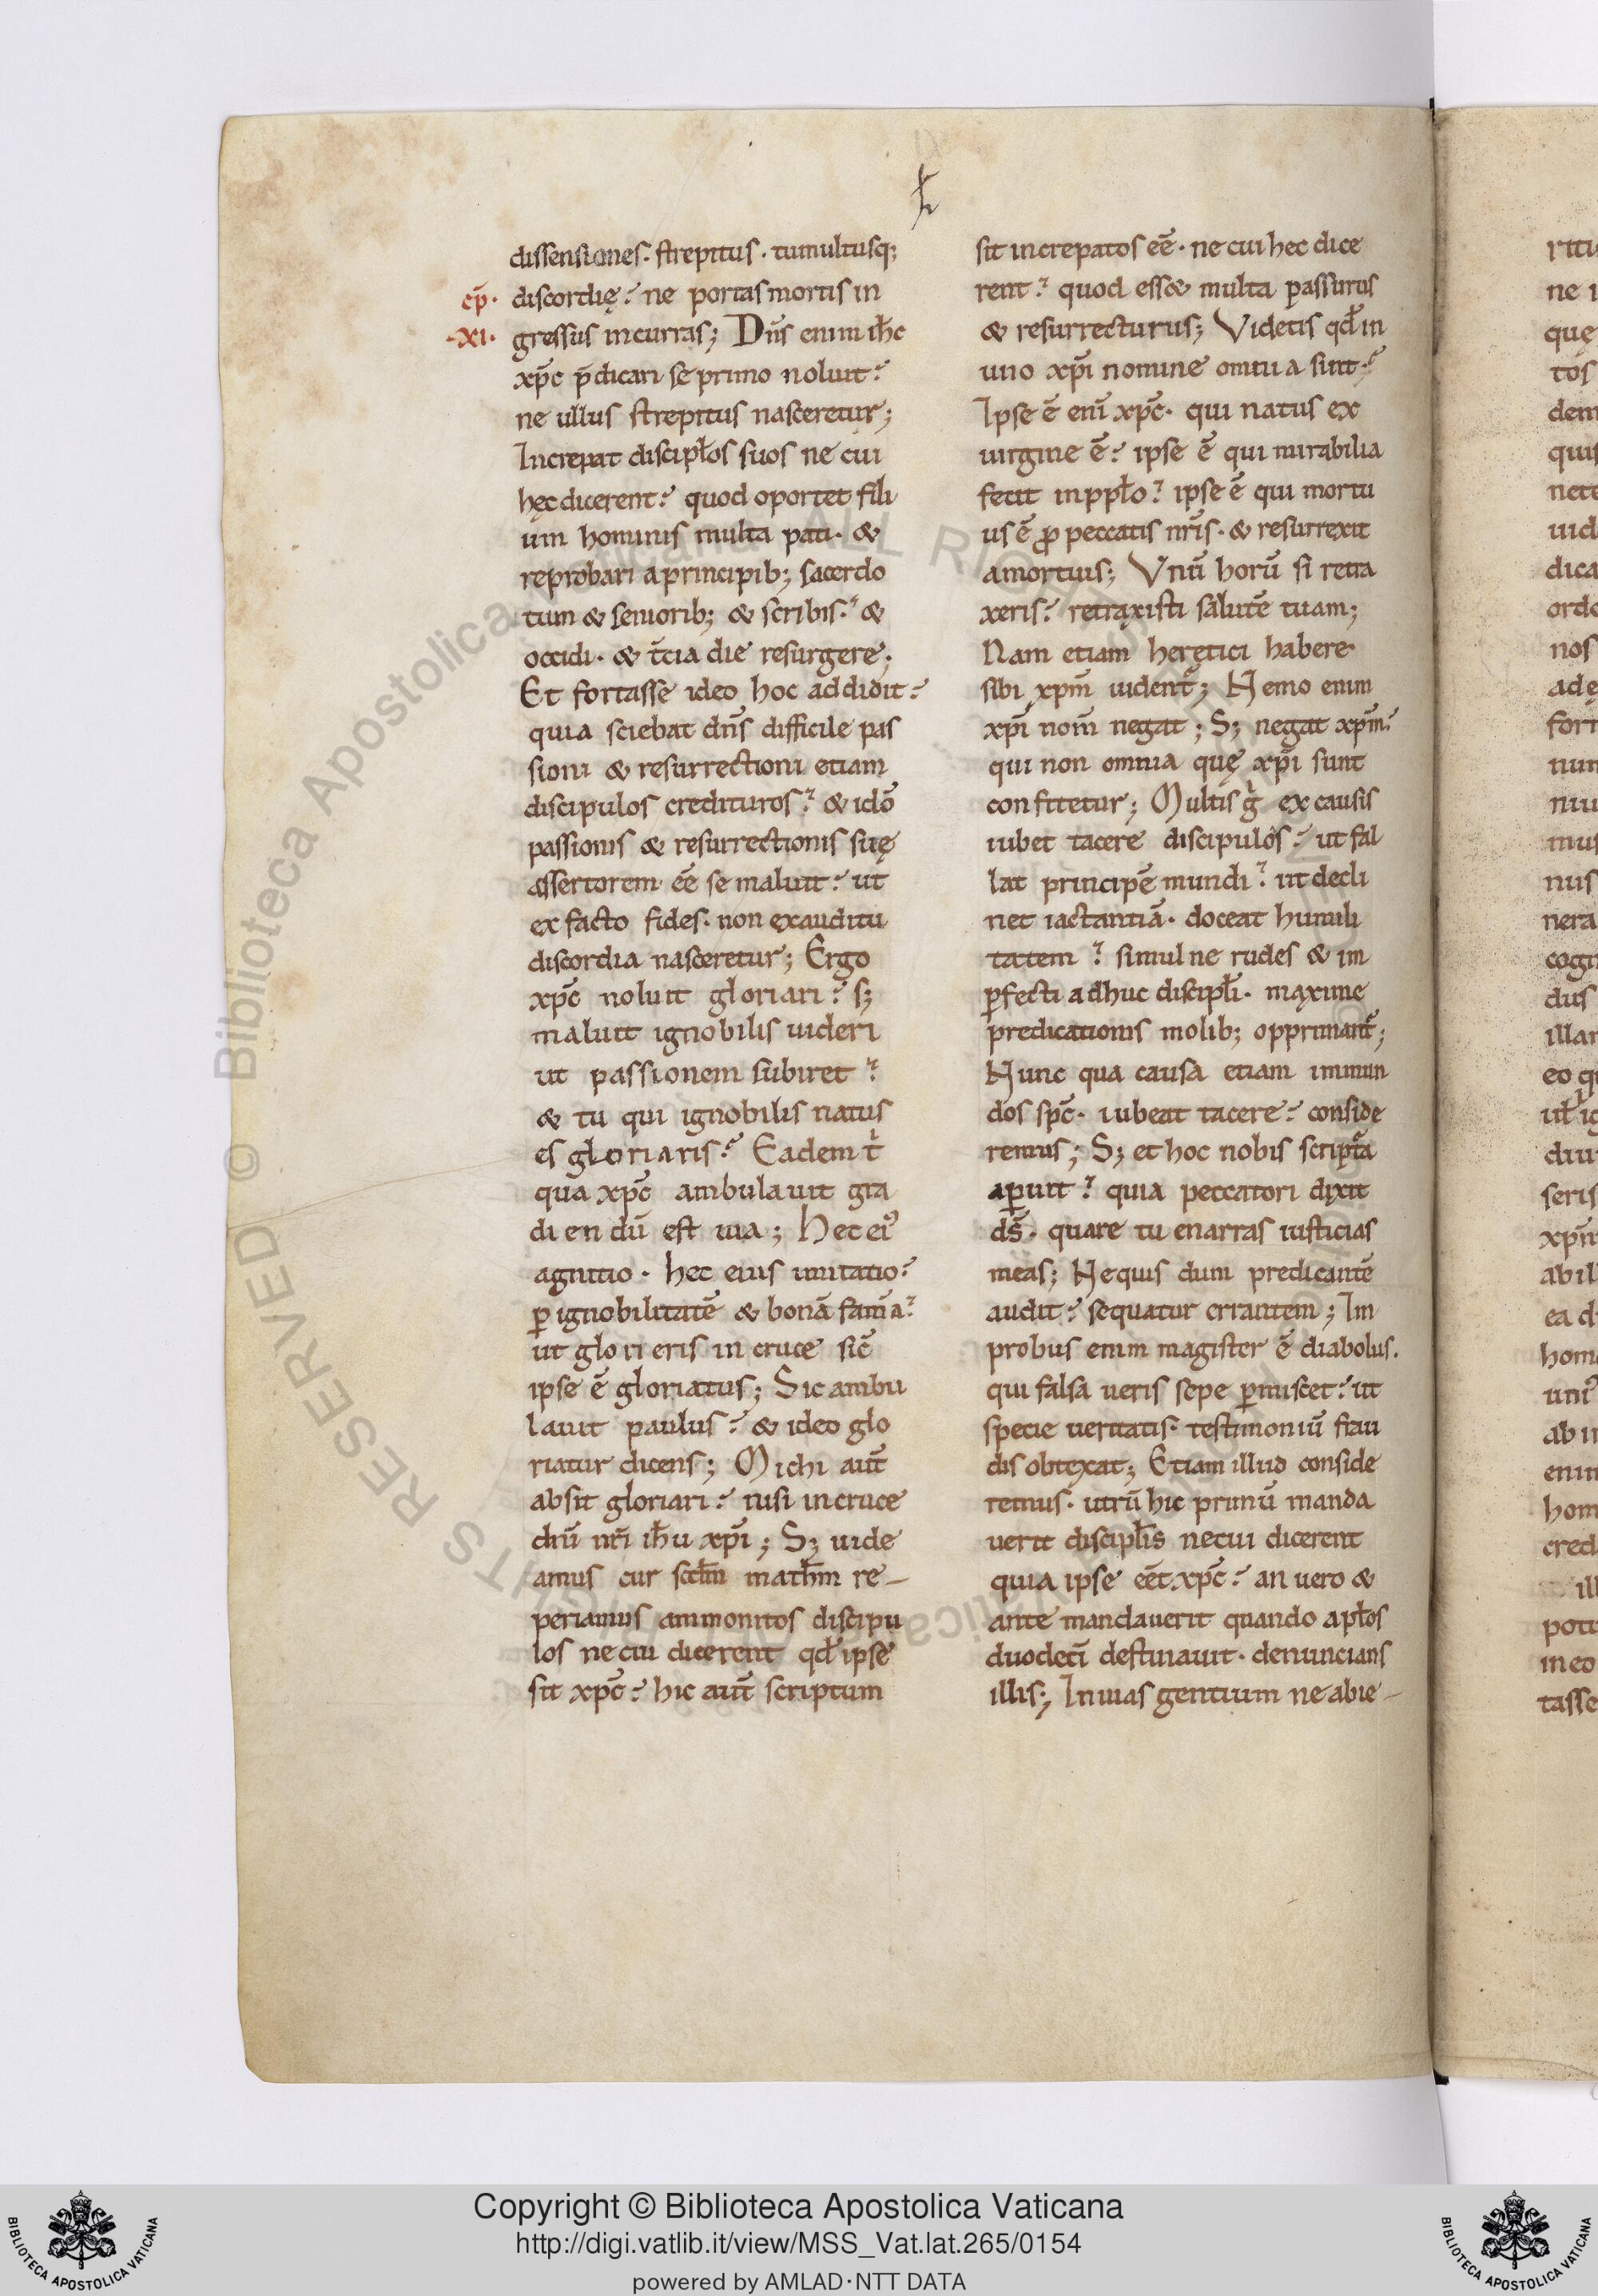 dissensiones· strepitus· tumultusq;
cp̄· discordię? ne portas mortis in
·xi· gressus incurras; Dn̄s enim ih̄c
xp̄c p̄dicari se primo noluit?
ne ullus strepitus nasceretur;
Increpat discipl̄os suos ne cui
hęc dicerent? quod oportet fili
um hominis multa pati· &
reprobari a principib; sacerdo
tum & seniorib; & scribis? &
occidi· & t̄cia die resurgere;
Et fortasse ideo hoc addidit?
quia sciebat dn̄s difficile pas
sioni & resurrectioni etiam
discipulos credituros? & idō
passionis & resurrectionis suę
assertorem eē se maluit? ut
ex facto fides· non ex auditu
discordia nasceretur; Ergo
xp̄c noluit gloriari? s;
maluit ignobilis uideri
ut passionem subiret?
& tu qui ignobilis natus
es gloriaris? Eadem t̄
qua xp̄c ambulauit gra
diendū est uia; Hec ei⁹
agnitio· hec eius imitatio?
ꝑ ignobilitatē & bonā fam̄a?
ut glorieris in cruce sic̄
ipse ē gloriatus; Sic ambu
lauit paulus? & ideo glo
riatur dicens; Michi aut̄
absit gloriari? nisi in cruce
dn̄i nr̄i ih̄u xp̄i; S; uide
amus cur scd̄m math̄m re–
periamus ammonitos discipu
los ne cui dicerent qd̄ ipse
sit xp̄c? hic aut̄ scriptum
sit increpatos eē· ne cui hec dice
rent? quod ess& multa passurus
& resurrecturus; Videtis qd̄ in
uno xp̄i nomine omnia sint?
Ipse ē enī xp̄c· qui natus ex
uirgine ē? ipse ē qui mirabilia
fecit in ppl̄o? ipse ē qui mortu
us ē ꝓ peccatis nr̄is· & resurrexit
a mortuis; Vnū horū si retra
xeris? retraxisti salutē tuam;
Nam etiam heretici habere
sibi xp̄m uident̄; Nemo enim
xp̄i nom̄ negat; S; negat xp̄m?
qui non omnia quę xp̄i sunt
confitetur; Multis g̊ ex causis
iubet tacere discipulos? ut fal
lat principē mundi? ut decli
net iactantiā· doceat humili
tatem? simul ne rudes & im
ꝑfecti adhuc discipl̄i· maxime
predicationis molib; opprimant̄;
Nunc qua causa etiam immun
dos sp̄c· iubeat tacere? conside
remus; S; et hoc nobis script̄a
aꝑuit? quia peccatori dixit
ds̄· quare tu enarras iusticias
meas; Nequis dum predicantē
audit? sequatur errantem; Im
probus enim magister ē diabolus·
qui falsa ueris sepe ꝑmiscet? ut
specie ueritatis· testimoniū frau
dis obtexat; Etiam illud conside
remus· utrū hic primū manda
uerit discipl̄is ne cui dicerent
quia ipse eēt xp̄c? an uero &
ante mandauerit quando apl̄os
duodecī destinauit· denuncians
illis; In uias gentium ne abie–
Copyright © Biblioteca Apostolica Vaticana
http://digi.vatlib.it/view/MSS_Vat.lat.265/0154
powered by AMLAD·NTT DATA
BIBLIOTECA APOSTOLICA VATICANA
BIBLIOTECA APOSTOLICA VATICANA